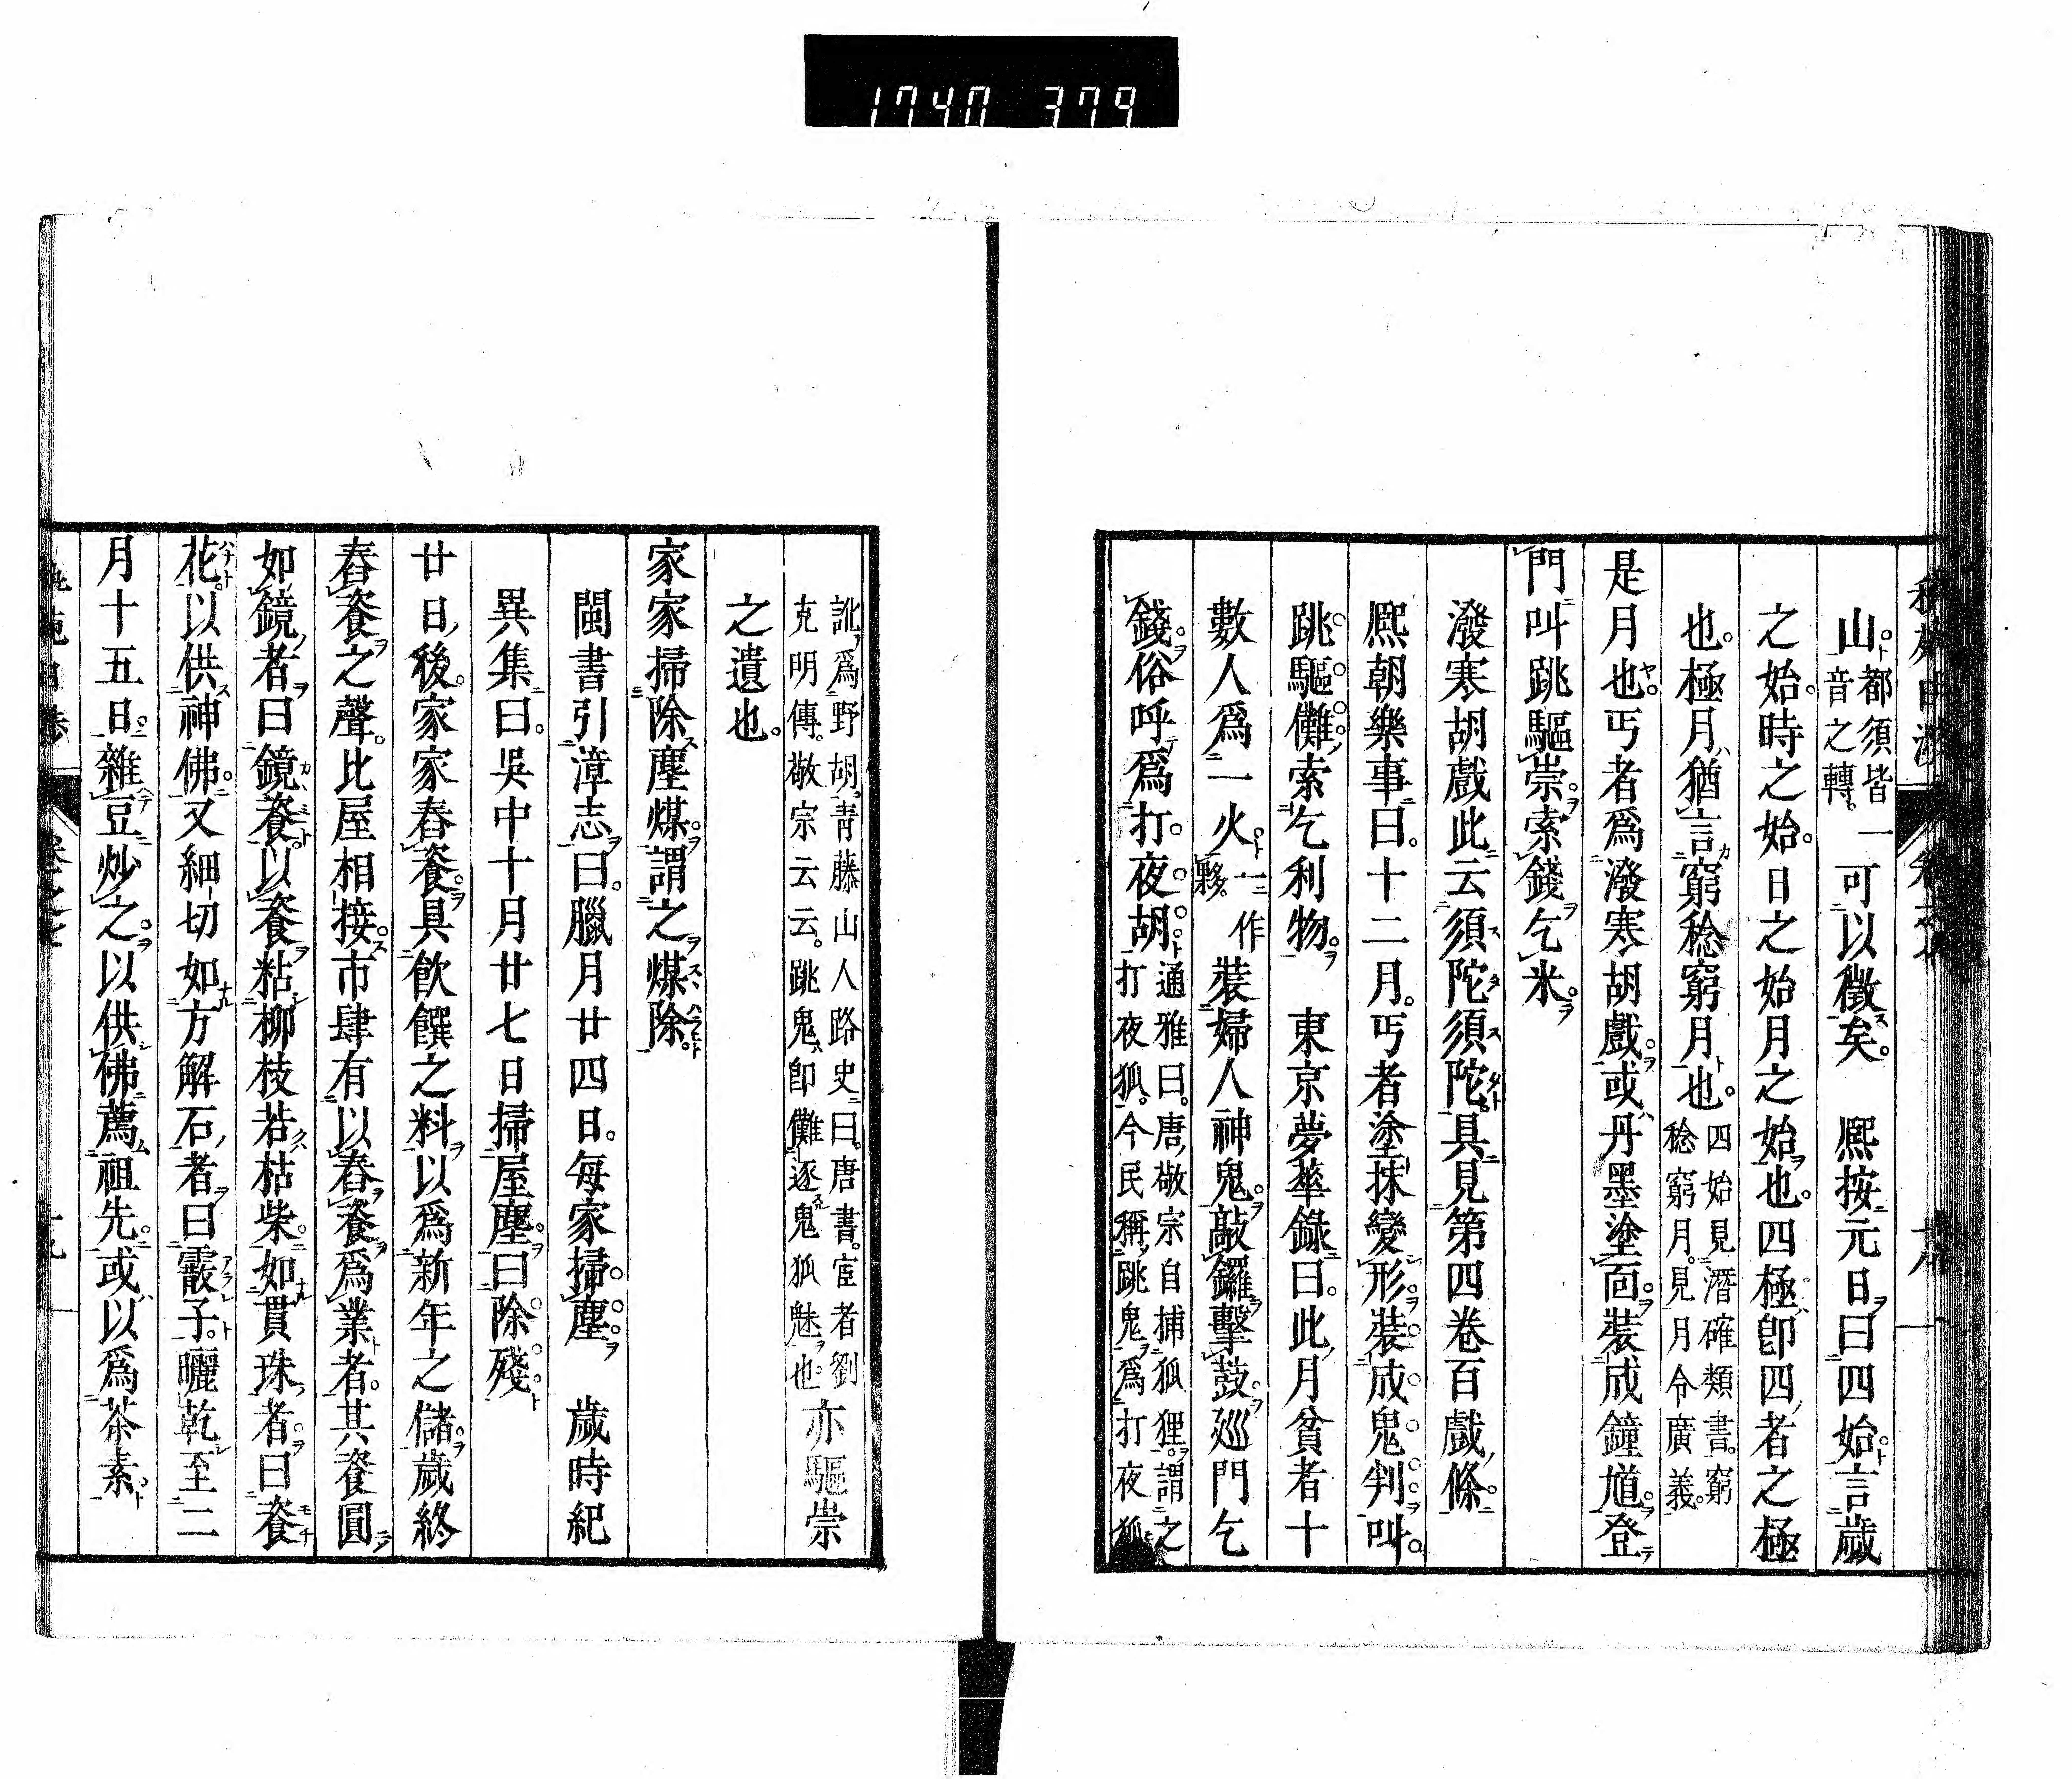 1740 379
山都須皆音之轉。一可以徵矣。 熈按元日曰四始言歳
之始。時之始。日之始月之始也。四極即四者之極
也。極月猶言窮稔窮月也。四始見潛確類書。窮稔窮月。見月令廣義。
是月也。丐者爲潑寒胡戲。或丹墨塗面。裝成鐘馗。登
門叫跳驅祟。索錢乞米。
潑寒胡戲此云須陀須陀。具見第四卷百戲條。
熈朝樂事曰。十二月。丐者塗抹變形裝成鬼判叫。
跳驅儺。索乞利物。 東京夢華錄曰。此月貧者十
數人爲一火。一作夥。裝婦人神鬼。敲鑼擊鼓。廵門乞
錢。俗呼爲打夜胡。通雅曰。唐敬宗自捕狐狸。謂之打夜狐。今民稱跳鬼爲打夜狐
訛爲野胡。青藤山人路史曰。唐書。宦者劉克明傳。敬宗云云。跳鬼即儺逐鬼狐魅也亦驅祟
之遺也。
家家掃除塵煤。謂之煤除。
閩書引漳志曰。臘月廿四日。每家掃塵。 歲時紀
異集曰。吳中十月廿七日掃屋塵。曰除殘
廿日後。家家舂餈。具飮饌之料以爲新年之儲。歲終
舂餈之聲。比屋相接。市肆有以舂餈爲業者。其餈圓
如鏡者曰鏡餈。以餈粘柳枝若枯柴。如貫珠者。曰餈
花。以供神佛。又細切如方解石者曰霰子。曬乾至二
月十五日。雜豆炒之。以供佛薦祖先。或以爲茶素